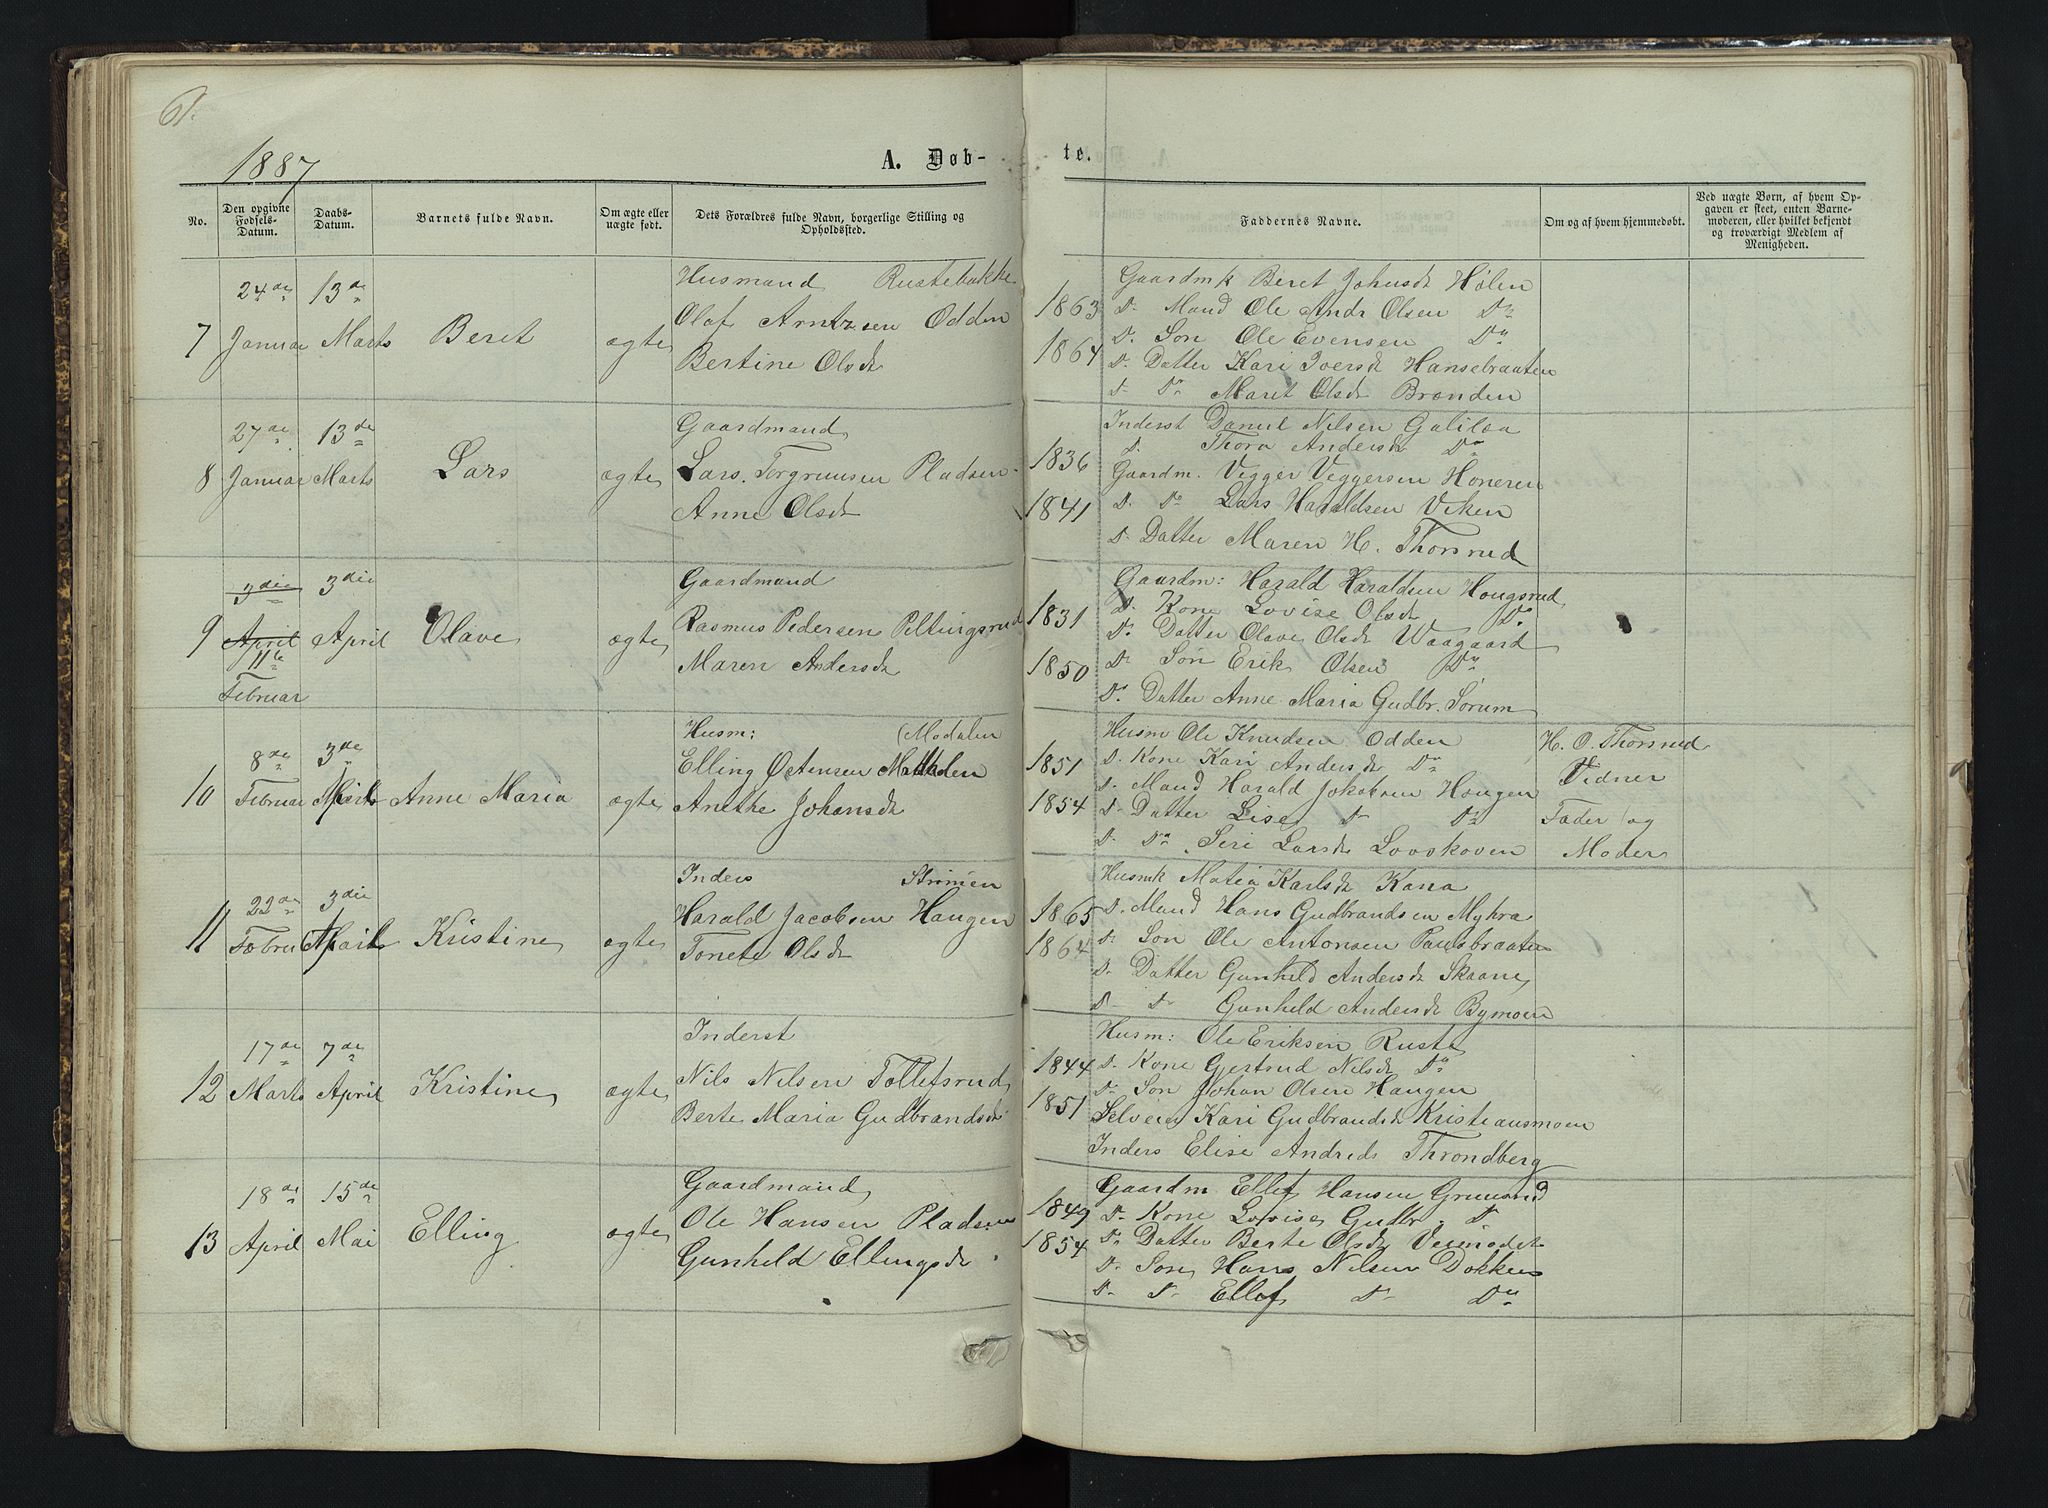 61.
1887
A. Døb-
te.
No.
Den opgivne Fødsels-Datum.
Daabs-Datum.
Barnets fulde Navn.
Om ægte eller uægte født.
Dets Forældres fulde Navn, borgerlige Stilling og Opholdssted.
Faddernes Navne.
Om og af hvem hjemmedøbt.
Ved uægte Børn, af hvem Opgaven er skeet, enten Barnemoderen, eller hvilket bekjendt og troværdigt Medlem af Menigheden.
7
24de Januar
13de Marts
Beret
ægte
Husmand Rustebakke
Olaf Arntzsen Odden
Bertine Olsdt
1863
1864
Gaardmk Beret Johnsdt Hølen
Do Mand Ole Andr Olsen Do
Do Søn Ole Evensen Do
Do Datter Kari Iversdt Hansebraaten
Do Do Maret Olsdt Brenden
8
27de Januar
13de Marts
Lars
ægte
Gaardmand
Lars Torgrimsen Pladsen
Anne Olsdt
1836
1841
Inderst Daniel Nilsen Galilæa
Do Thora Andersdt Do
Gaardm. Vigger Viggersen Honeren
Do Do Lars Haraldsen Viken
Do Datter Maren H. Thorsrud
9
3die April
11te Februar
3die April
Olave
ægte
Gaardmand
Rasmus Pedersen Peltingsrud
Maren Andersdt
1831
1850
Gaardm: Harald Haraldsen Hougsrud
Do Kone Lovise Olsdt Do
Do Datter Olave Olsdt Waagaard
Do Søn Erik Olsen Do
Do Datter Anne Maria Gudbr. Sørum
10
8de Februar
3die April
Anne Maria
ægte
Husm: (Modalen
Elling Østensen
Anethe Johansdt
1851
1854
Husm Ole Knudsen Odden
Do Kone Kari Andersdt Do
Do Mand Harald Jokobsen Hougen
Do Datter Lise Do Do
Do Do Siri Larsdt Lovskoven
H. O. Thorsrud
Vidner
Fader og
Moder
11
22de Febru
3die April
Kristine
ægte
Inders Strømen
Harald Jacobsen Haugen
Tonete Olsdt
1865
1864
Husmk Matea Karlsdt Kana
Do Mand Hans Gudbrandsen Myhra
Do Søn Ole Antonsen Paulsbraaten
Do Datter Gunhild Andersdt Skaane
Do Do Gunhild Andersdt Bymoen
12
17de Marts
7de April
Kristine
ægte
Inderst
Nils Nilsen Tollefsrud
Berte Maria Gudbrandsdt
1844
1851
Husm: Ole Eriksen Ruste
Do Kone Gjertrud Nilsdt Do
Do Søn Johan Olsen Haugen
Selveier Kari Gudbrandsdt Kristiansmoen
Inders Elise Andreds Throndberg
13
18de April
15de Mai
Elling
ægte
Gaardmand
Ole Hansen Pladsen
Gunhild Ellingsdt
1849
1854
Gaardm. Ellef Hansen Grimsrud
Do Kone Lovise Gudbr. Do
Do Datter Berte Olsdt Veimodet
Do Søn Hans Nilsen Dokken
Do Do Ellef Do Do